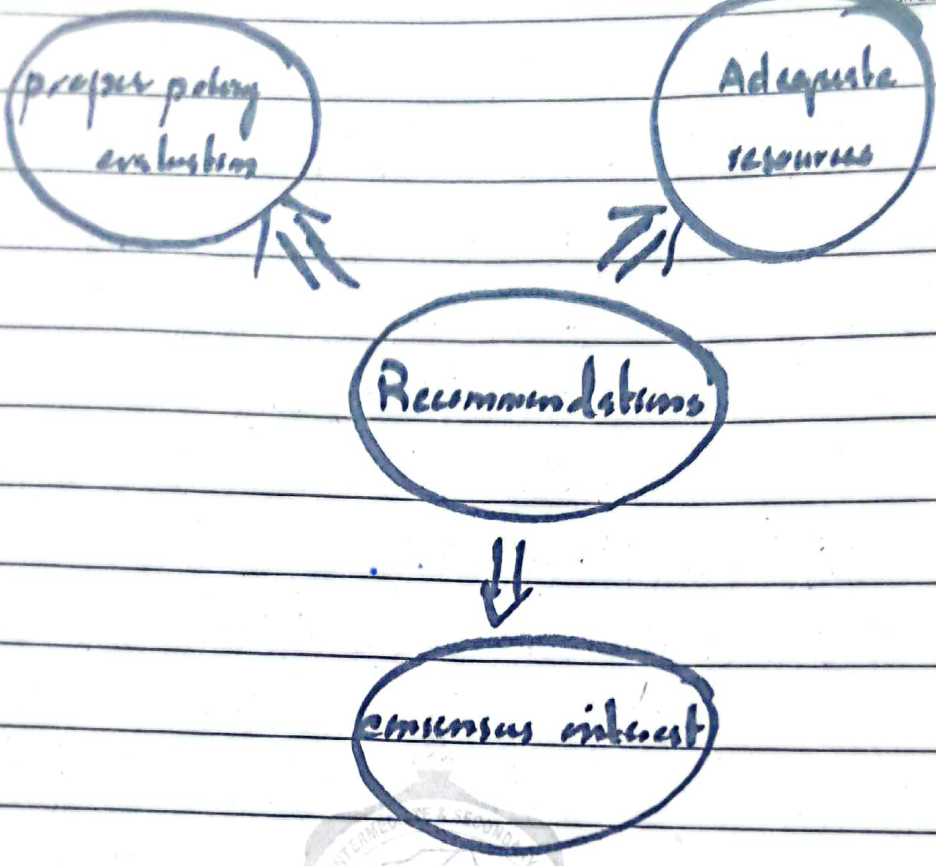 proper policy
evaluation
Adequate
resources
Recommendations
consensus interest
INTERMEDIATE & SECONDARY